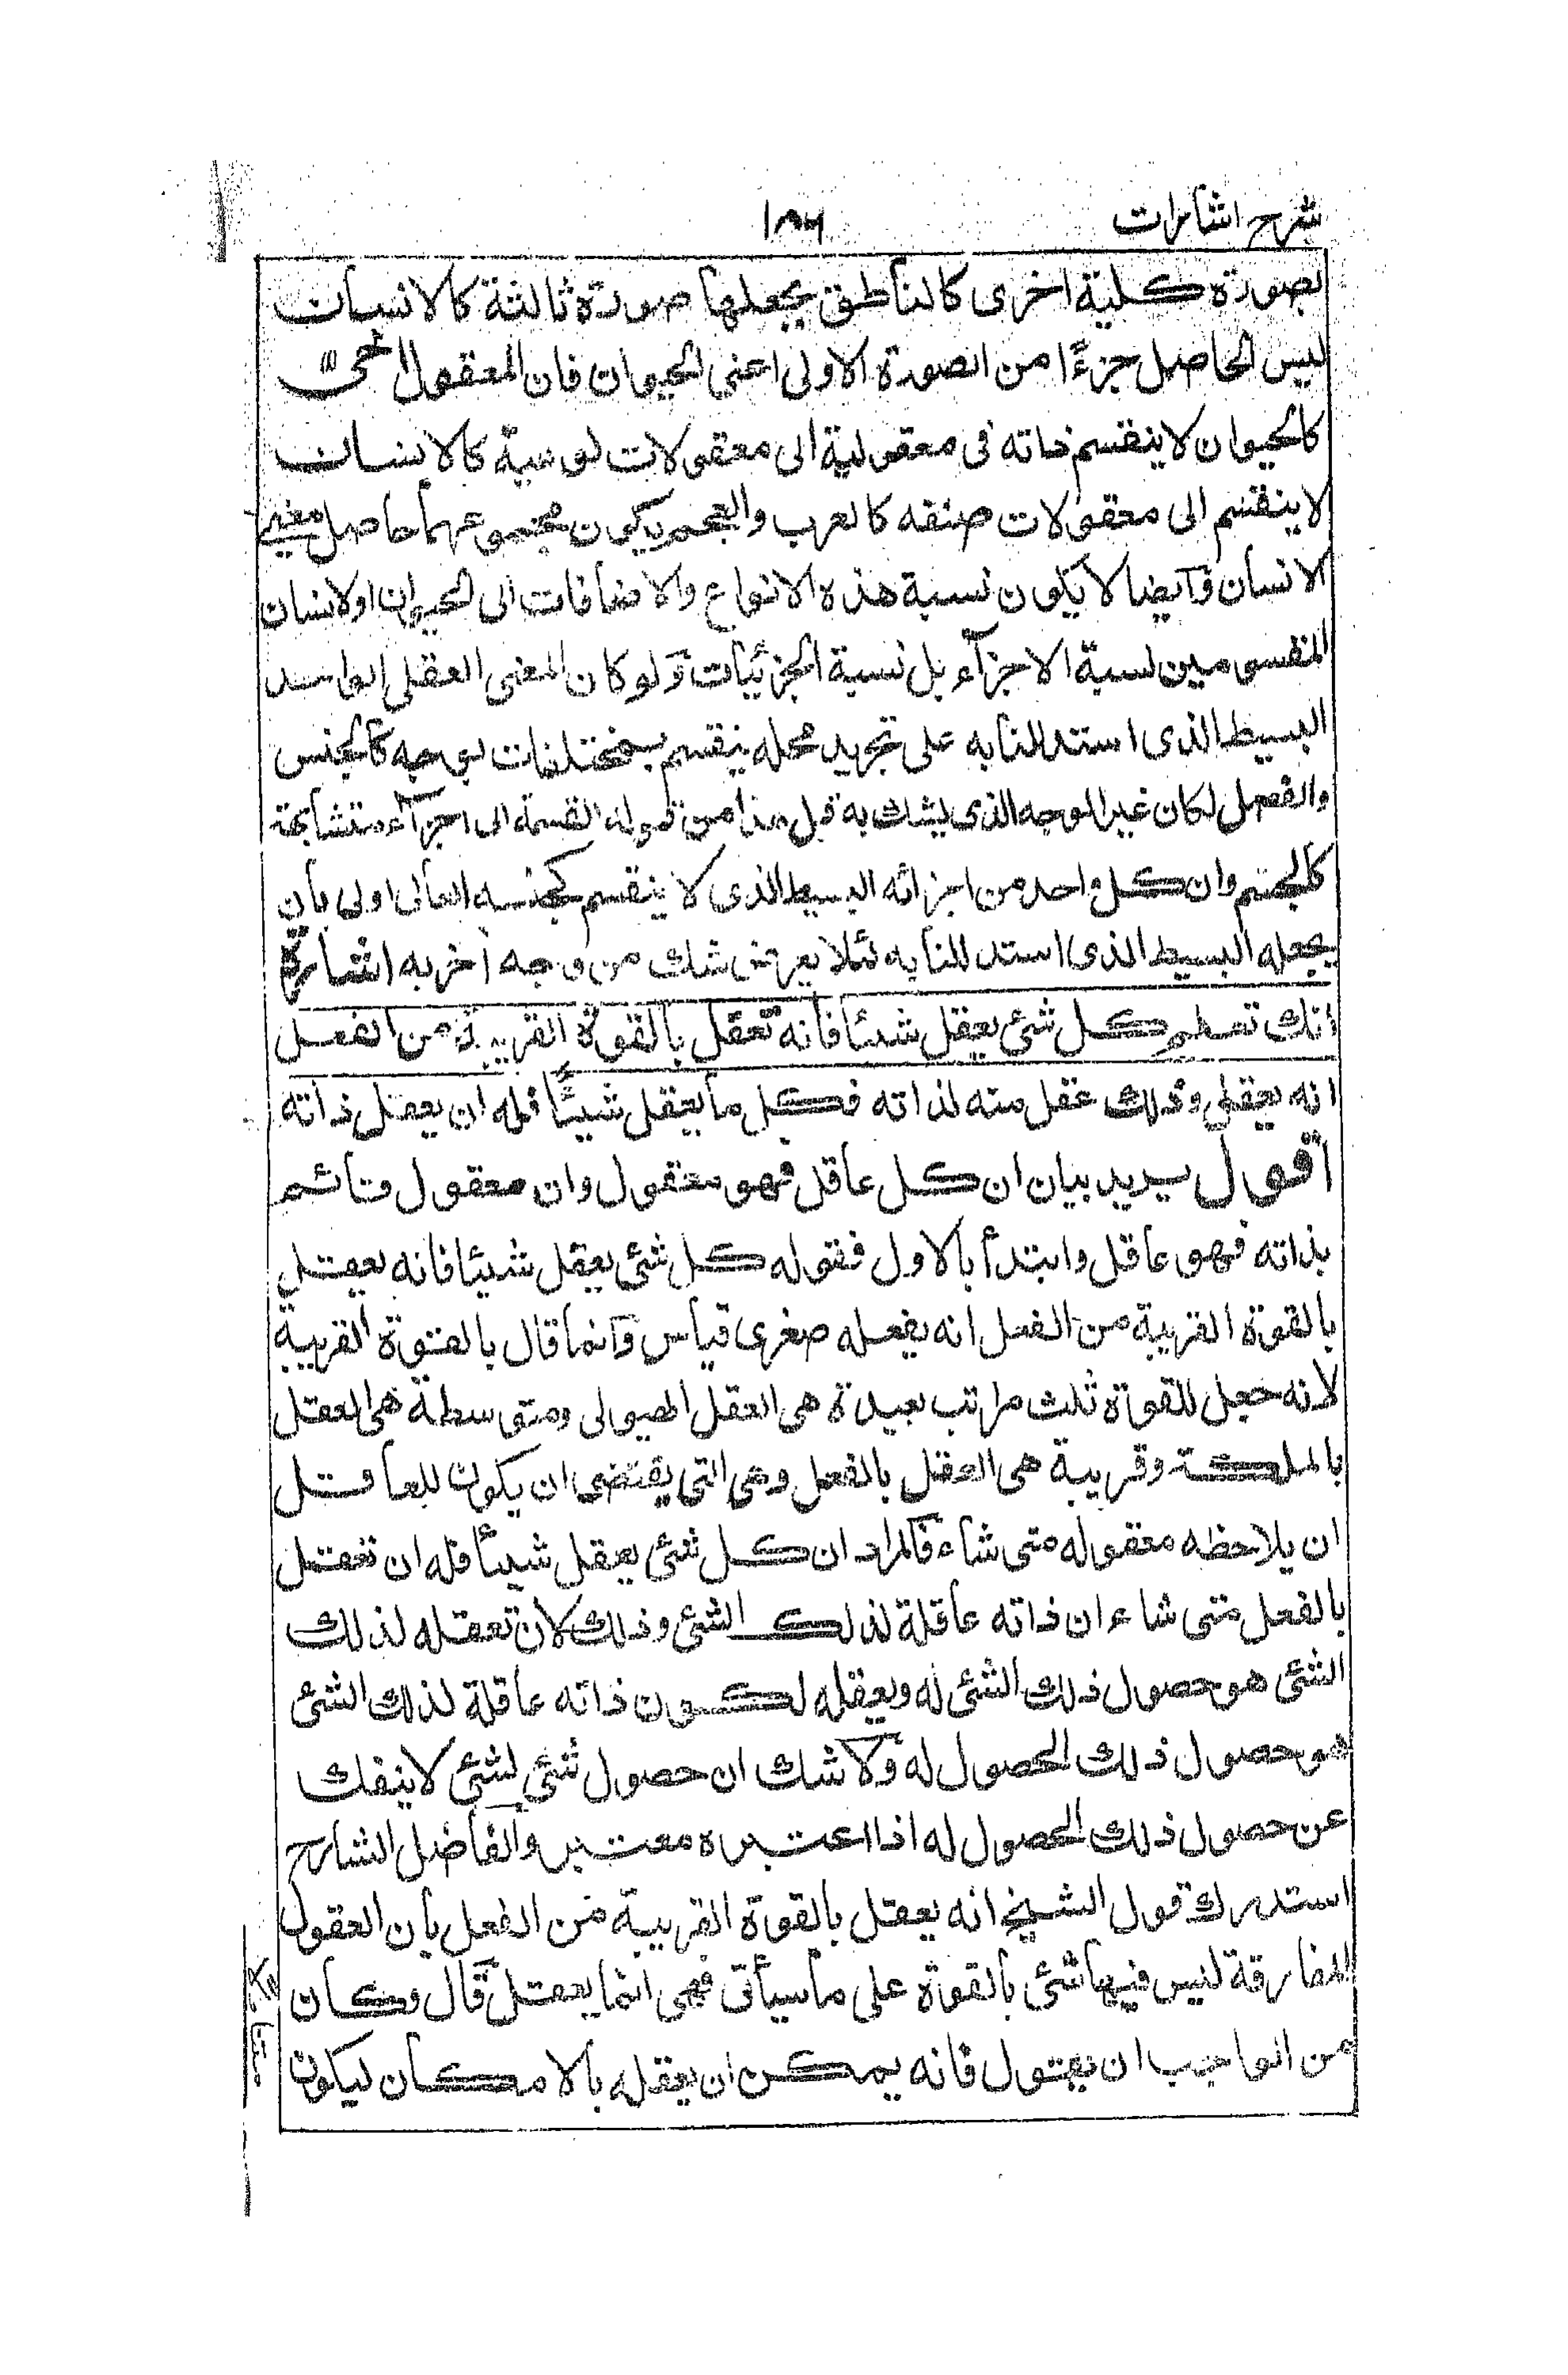 شرح اشارات ١٨٦
بصورة كلية اخرى كالناطق يجعلها صورة ثالثة كالانسان
ليس الحاصل جزءًا من الصورة الاولى اعنى الحيوان فان المعقول الجنسى
كالحيوان لا ينقسم ذاته فى معقولية الى معقولات نوعية كالانسان
لا ينقسم الى معقولات صنفه كالعرب والعجم ويكون مجموعهما حاصل معنى
الانسان وايضا لا يكون نسبة هذه الانواع والاضافات الى الحيوان او الانسان
المنقسمين نسبة الاجزاء بل نسبة الجزئيات ولو كان المعنى العقلى الواحد
البسيط الذى استدللنا به على تجريد محله ينقسم بمختلفات بوجه كالجنس
والفصل لكان غير الوجه الذى يشك به قبل هذا من قبوله القسمة الى اجزاء متشابهة
كالجسم وان كل واحد من اجزائه البسيط الذى لا ينقسم كجنسه العالى اولى بان
يجعله البسيط الذى استدللنا به لئلا يعرض شك من وجه اخر به اشارة
انك تعلم كل شئ يعقل شيئا فانه تعقل بالقوة القريبة من الفعل
انه يعقل وذلك عقل منه لذاته فكل ما يعقل شيئًا فله ان يعقل ذاته
اقول يريد بيان ان كل عاقل فهو معقول وان معقول قائم
بذاته فهو عاقل وابتدأ بالاول فقوله كل شئ يعقل شيئا فانه يعقل
بالقوة القريبة من الفعل انه يفعله صغرى قياس وانما قال بالقوة القريبة
لانه جعل للقوة ثلث مراتب بعيدة هى العقل الهيولى ومتوسطة هى العقل
بالملكة وقريبة هى العقل بالفعل وهى التى يقتضى ان يكون للعاقل
ان يلاحظه معقوله متى شاء فالمراد ان كل شئ يعقل شيئا فله ان تعقل
بالفعل متى شاء ان ذاته عاقلة لذلك الشئ وذلك لان تعقله لذلك
الشئ هو حصول ذلك الشئ له ويعقله لكون ذاته عاقلة لذلك الشئ
هو حصول ذلك الحصول له ولا شك ان حصول شئ لشئ لا ينفك
عن حصول ذلك الحصول له اذا اعتبره معتبر والفاضل الشارح
استدرك قول الشيخ انه يعقل بالقوة القريبة من الفعل بان العقول
المفارقة ليس فيها شئ بالقوة على ما سيأتى فهى انما يعقل قال وكان
من الواجب ان يقول فانه يمكن ان يعقله بالامكان ليكون